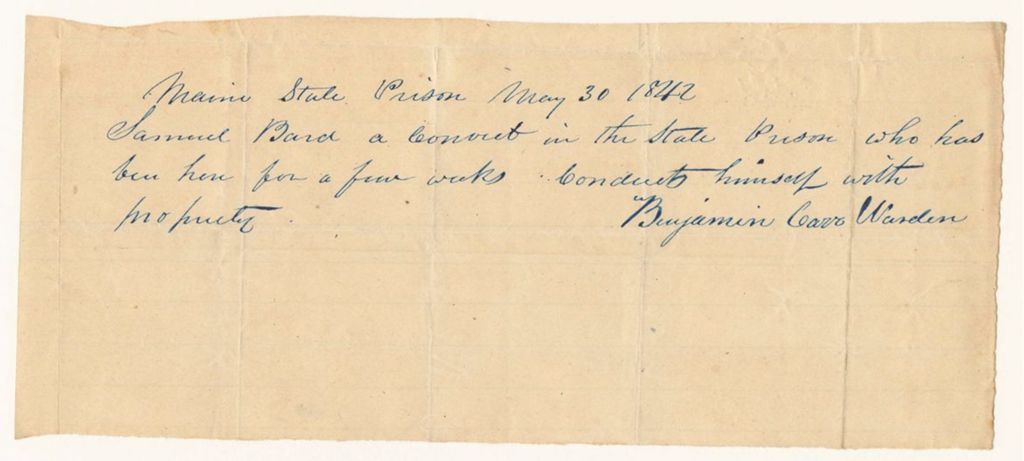 Maine State Prison May 30 1842
Samuel Bard a Convict in the State Prison who has
been here for a few weeks Conducts himself with
propriety.
Benjamin Carr Warden